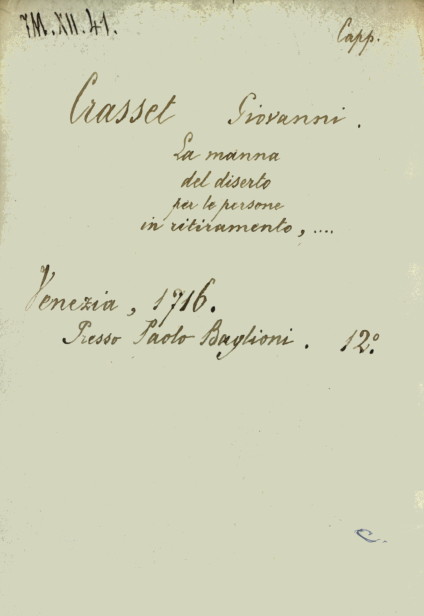 7M.XII.41.
Capp.
Crasset Giovanni.
La manna
del diserto
per le persone
in ritiramento, ....
Venezia, 1716.
Presso Paolo Baglioni. 12º.
C.